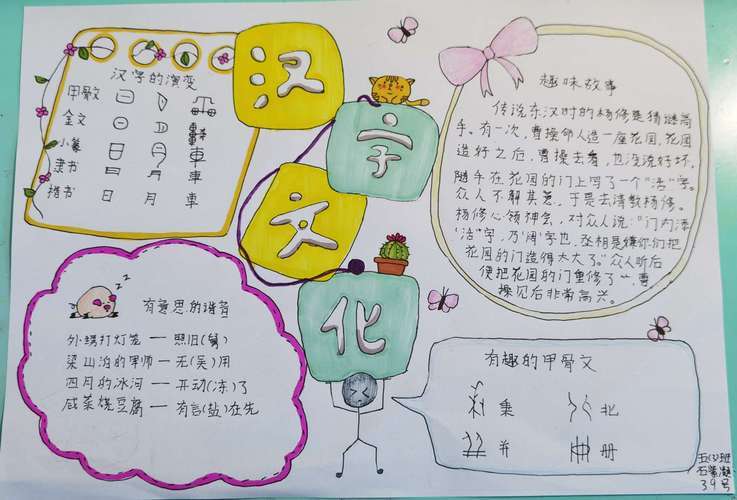 汉
字
文
化
汉字的演变
甲骨文
金文
小篆
隶书 日 月 車
楷书 日 月 車
趣味故事
传说东汉时的杨修是猜谜高
手。有一次，曹操命人造一座花园，花园
造好之后，曹操去看，也没说好坏，
随手在花园的门上写了一个"活"字。
众人不解其意，于是去请教杨修。
杨修心领神会，对众人说："门内添
'活'字，乃'阔'字也，丞相是嫌你们把
花园的门造得太大了。"众人听后
便把花园的门重修了一，曹
操见后非常高兴。
有意思的谐音
外甥打灯笼 — 照旧(舅)
梁山泊的军师 — 无(吴)用
四月的冰河 — 开动(冻)了
咸菜烧豆腐 — 有言(盐)在先
有趣的甲骨文
乘 北
并 册
班
39号